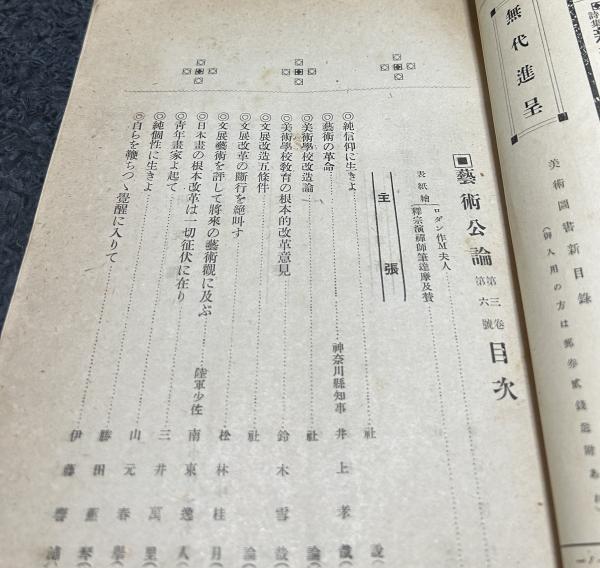 無代進呈
美術圖書新目錄
(御入用の方は郵券貳錢送附あれ)
藝術公論 第三卷第六號 目次
表紙繪 ロダン作M夫人
釋宗演禪師筆達摩及賛
主張
◎純信仰に生きよ 社說
◎藝術の革命 神奈川縣知事 井上孝哉
◎美術學校改造論 社論
◎美術學校敎育の根本的改革意見 鈴木雪哉
◎文展改造五條件 社論
◎文展改革の斷行を絕叫す 松林桂月
◎文展藝術を評して將來の藝術觀に及ぶ 陸軍少佐 南東逸人
◎日本畫の根本改革は一切征伏に在り 三井萬里
◎靑年畫家よ起て 山元春擧
◎純個性に生きよ 勝田蕉琴
◎自らを鞭ちつゝ覺醒に入りて 伊藤響浦